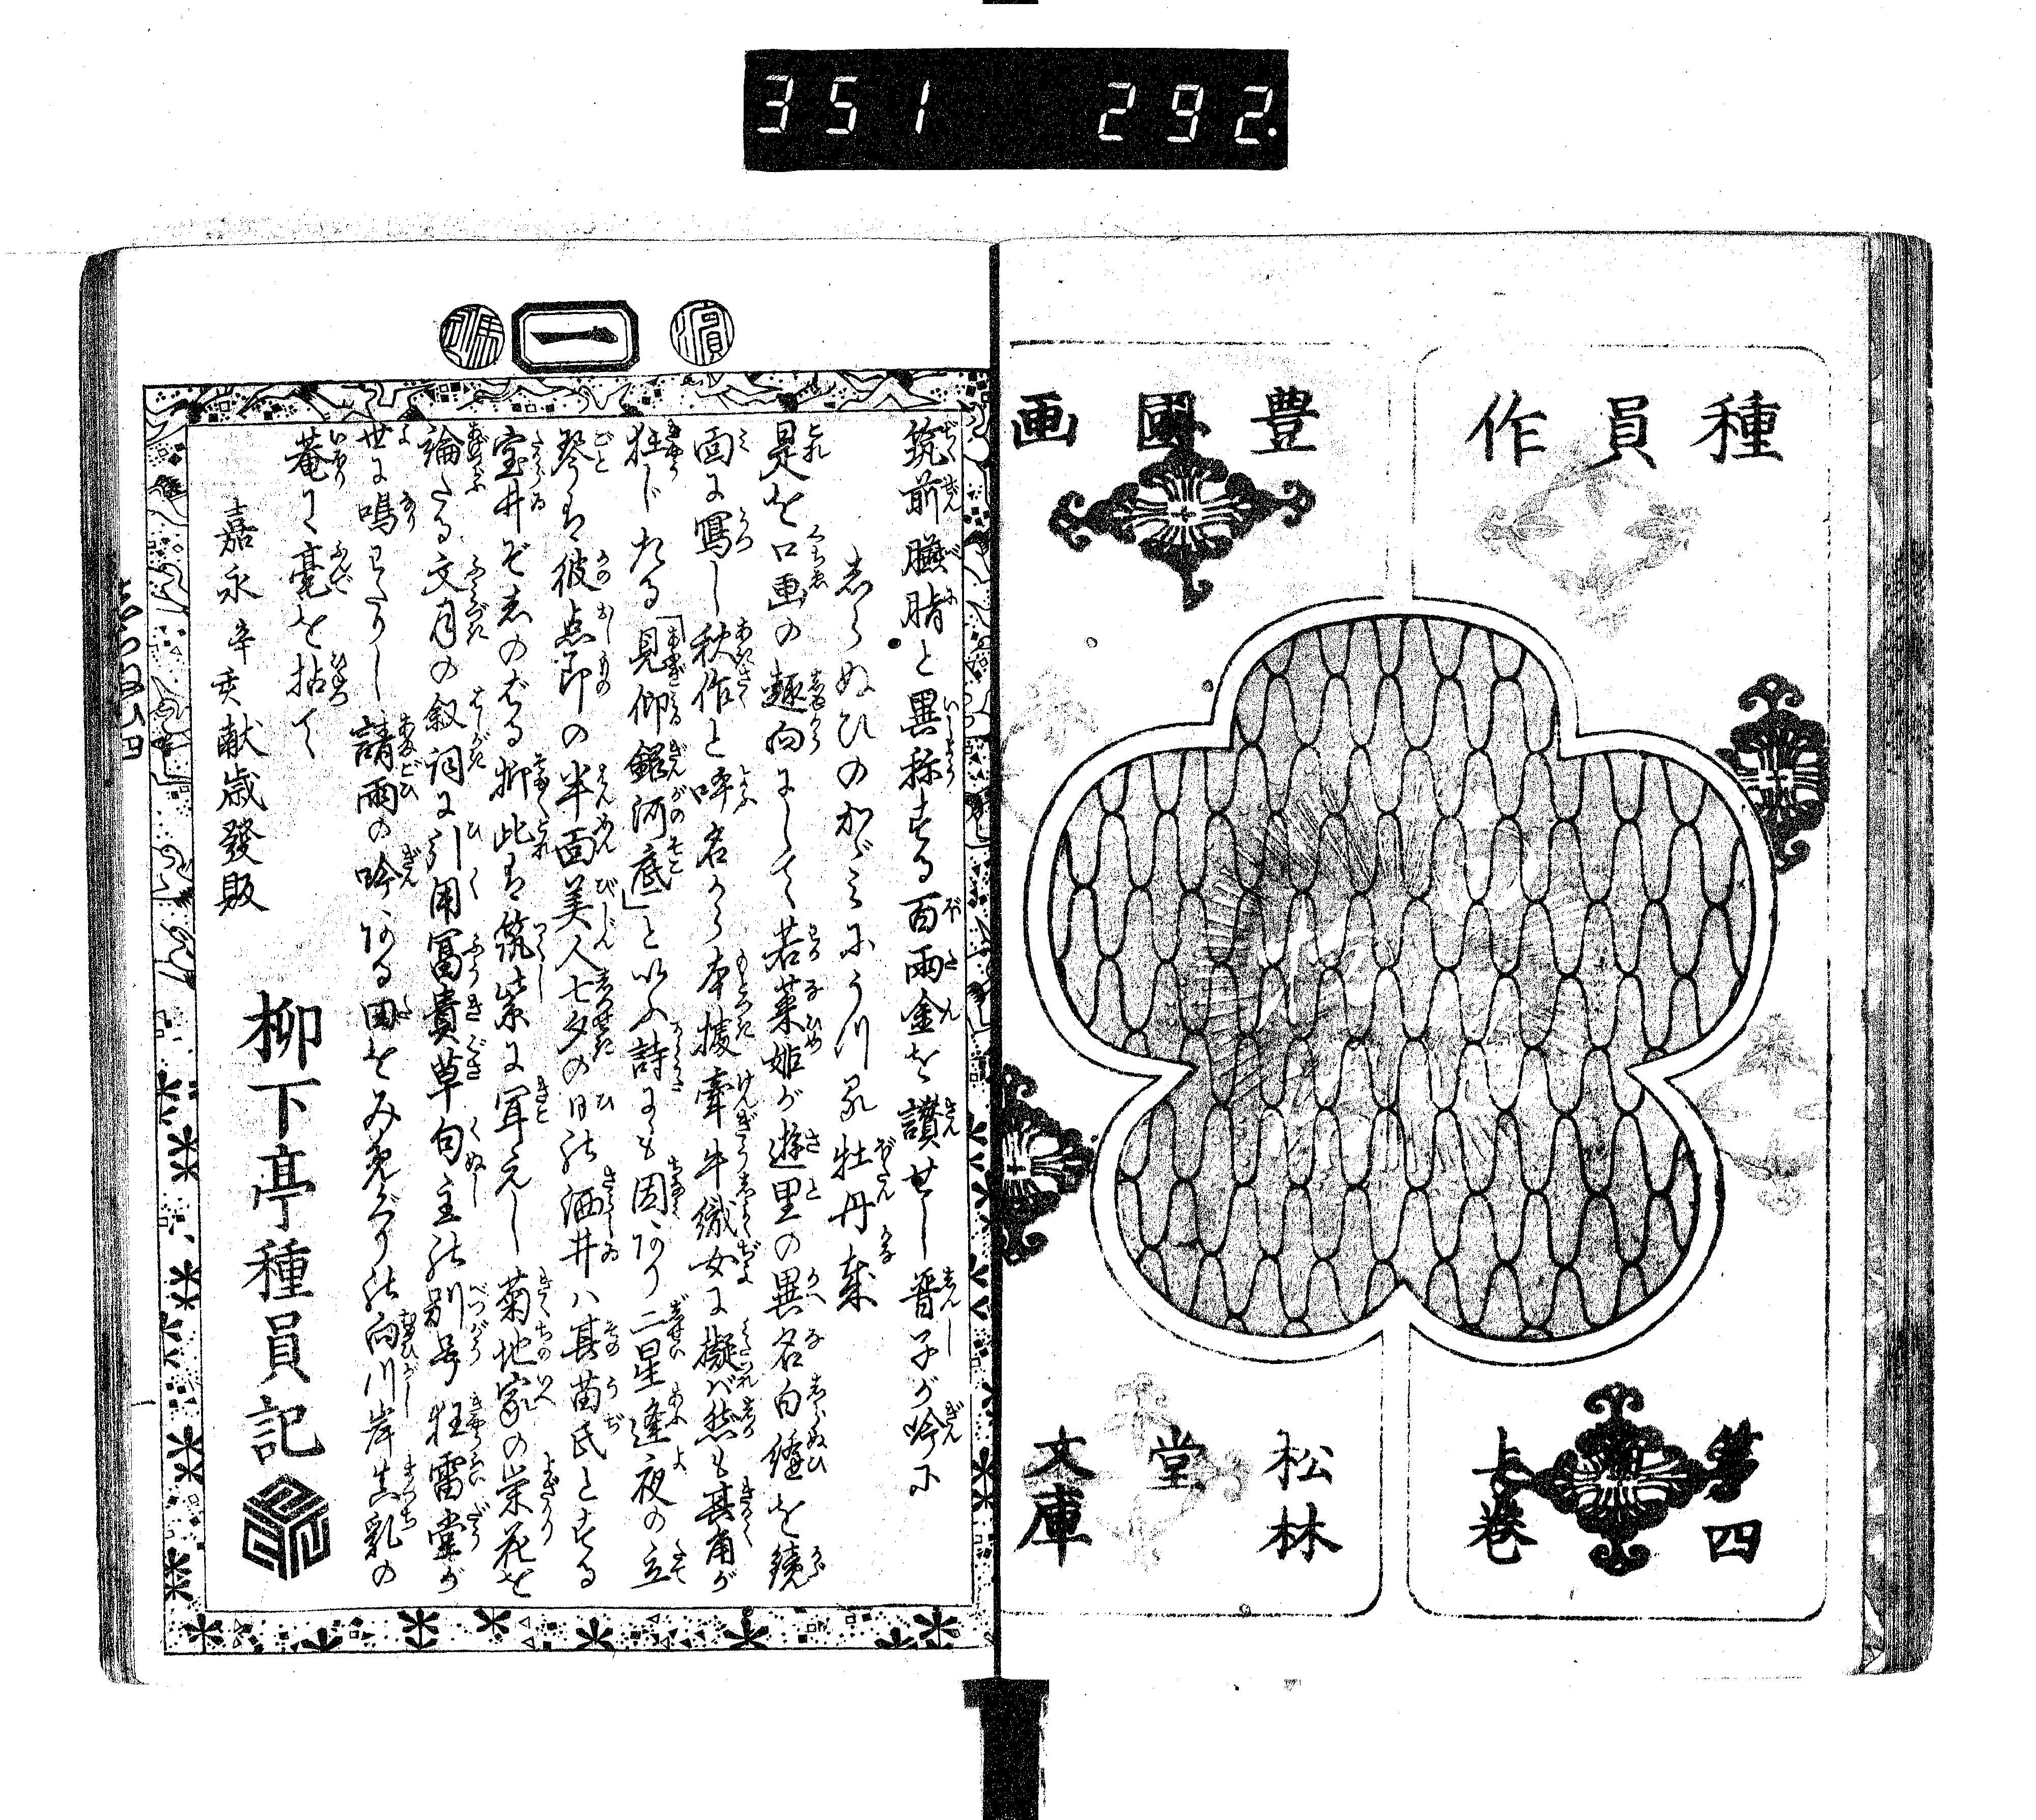 351 292.
種員作
豊國画
第四
上巻
松林
堂
文庫
一
筑前膴脂と異称する百両金を讃せし晋子が吟に
しらぬひのかゞみにうつる牡丹哉
是を口画の趣向にして若菜姫が遊里の異名白縫を鏡
面に写し秋作と呼名から本拠牽牛織女に擬ば然も其角が
狂じたる「見仰銀河底」といふ詩にも因あり二星逢夜の立
琴は彼点印の半面美人七夕の日の洒井ハ其苗氏とする
宝井ぞ志のばる抑此は筑紫に耳えし菊地家の栄花を
論たる文月の叙詞に引用冨貴草句主の別号狂雷堂が
世に鳴わたりし請雨の吟ある田をみめぐりの向川岸真乳の
菴にて毫を拈て
嘉永辛亥献歳發販
柳下亭種員記